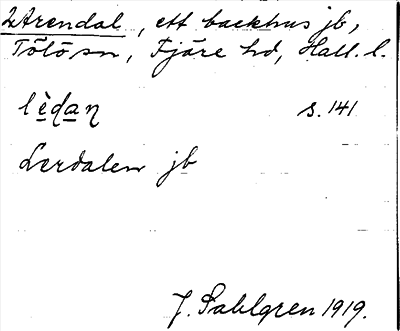 2Arendal, ett backhus jb,
Tölö sn, Fjäre hd, Hall. l.
lèdaņ s. 141
Lerdalen jb
J. Sahlgren 1919.